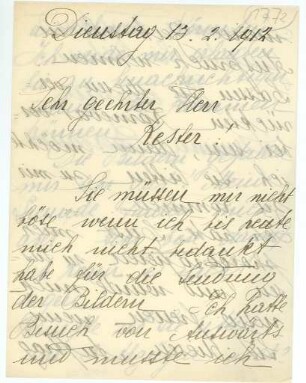 1772
Dienstag 13.2.1912
Sehr geehrter Herr
Kester!
Sie müssen mir nicht
böse wenn ich bis heute
mich nicht bedankt
habe für die Sendung
der Bildern Ich hatte
Besuch von Auswärts
und musste ich